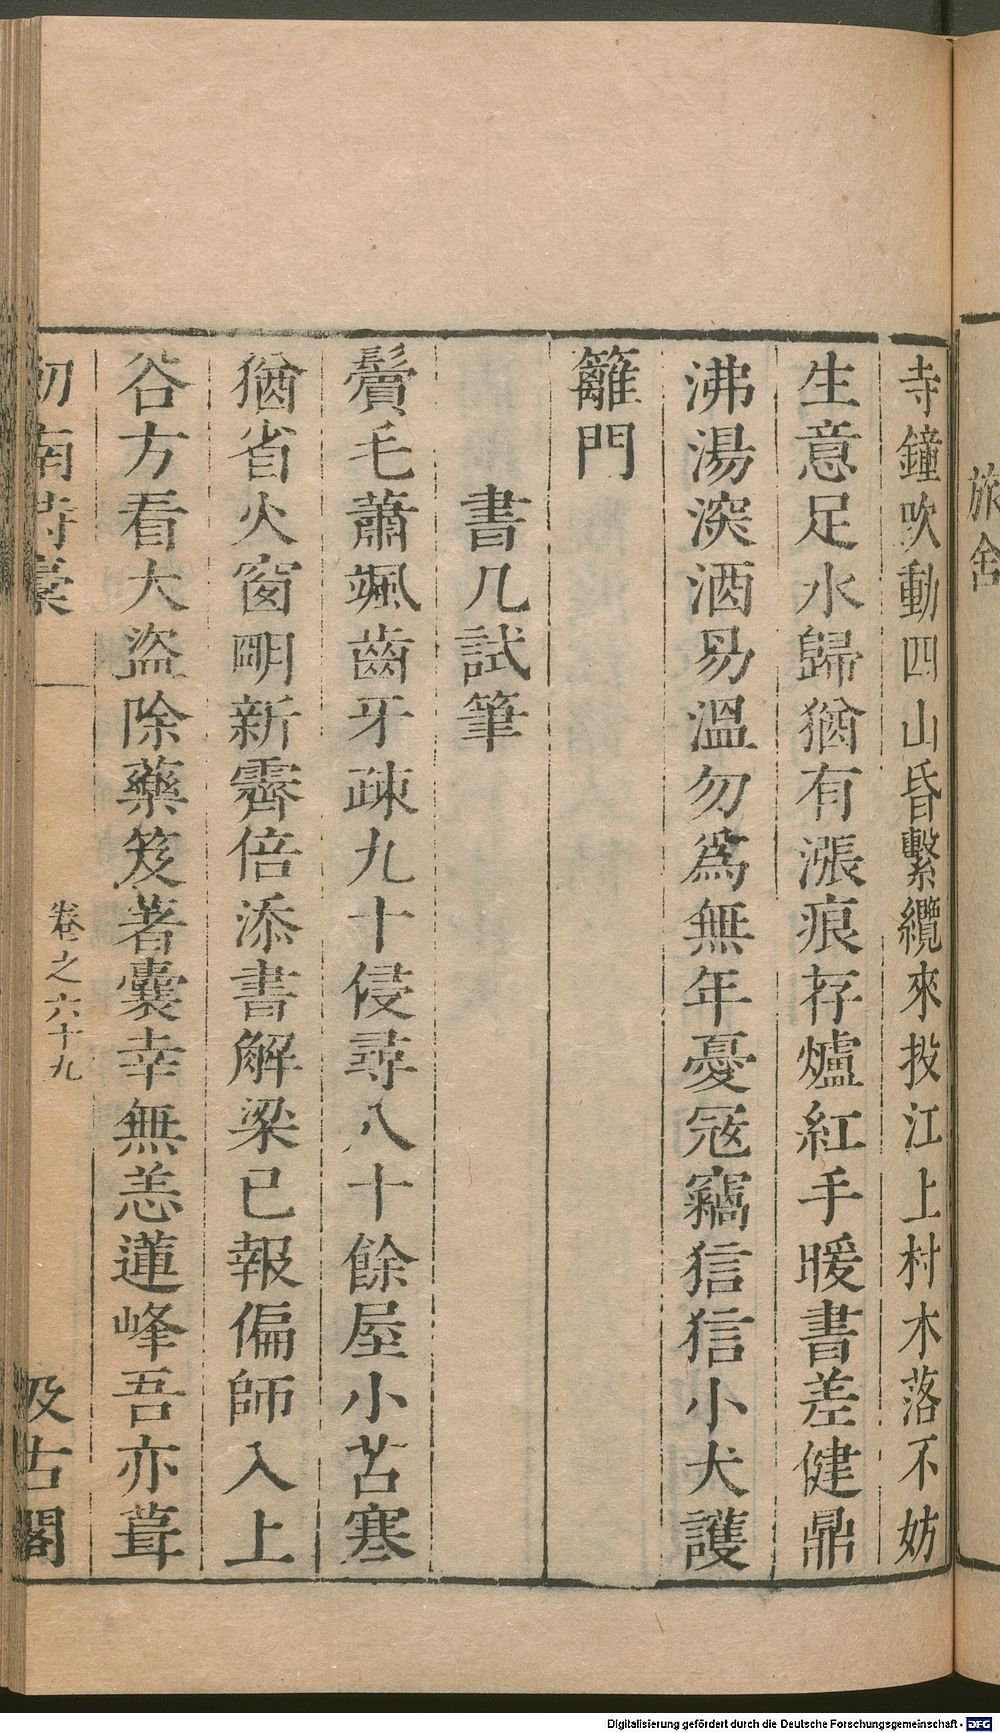 旅舍
寺鐘吹動四山昏繫纜來投江上村木落不妨
生意足水歸猶有漲痕存爐紅手暖書差健鼎
沸湯深酒易溫勿爲無年憂寇竊狺狺小犬護
籬門
書几試筆
鬢毛蕭颯齒牙疎九十侵尋八十餘屋小苦寒
猶省火窗明新霽倍添書解梁已報偏師入上
谷方看大盜除藥笈著囊幸無恙蓮峰吾亦葺
劍南詩稾
卷之六十九
汲古閣
Digitalisierung gefördert durch die Deutsche Forschungsgemeinschaft - DFG